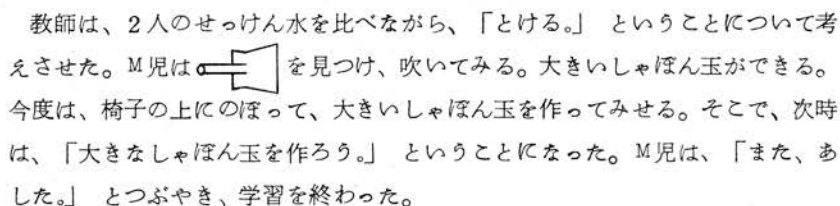 教師は、2人のせっけん水を比べながら、「とける。」 ということについて考
えさせた。M児は を見つけ、吹いてみる。大きいしゃぼん玉ができる。
今度は、椅子の上にのぼって、大きいしゃぼん玉を作ってみせる。そこで、次時
は、「大きなしゃぼん玉を作ろう。」 ということになった。M児は、「また、あ
した。」 とつぶやき、学習を終わった。